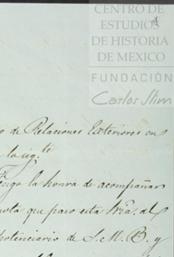 CENTRO DE
ESTUDIOS
DE HISTORIA
DE MEXICO
FUNDACIÓN
Carlos Slim
o de Relaciones Exteriores en
la sig.te
Tengo la honra de acompañar
nota que paso esta fha. al
potenciario de S. M. B. y